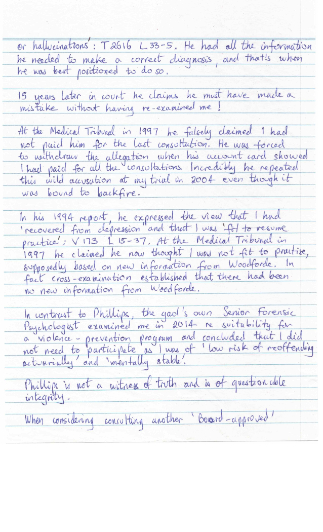 or hallucinations': T2616 L 33-5. He had all the information
he needed to make a correct diagnosis, and that is when
he was best positioned to do so.
15 years later in court he claims he must have made a
mistake without having re-examined me!
At the Medical Tribunal in 1997 he falsely claimed I had
not paid him for the last consultation. He was forced
to withdraw the allegation when his account card showed
I had paid for all the consultations. Incredibly he repeated
this wild accusation at my trial in 2004 even though it
was bound to backfire.
In his 1994 report, he expressed the view that I had
'recovered from depression and that I was 'fit to resume
practice': V173 L 15-37. At the Medical Tribunal in
1997 he claimed he now thought I was not fit to practise,
supposedly based on new information from Woodforde. In
fact cross-examination established that there had been
no new information from Woodforde.
In contrast to Phillips, the gaol's own Senior Forensic
Psychologist examined me in 2014 re suitability for
a violence-prevention program and concluded that I did
not need to participate as I was of 'low risk of reoffending
actuarially' and 'mentally stable'.
Phillips is not a witness of truth and is of questionable
integrity.
When considering consulting another 'Board-approved'